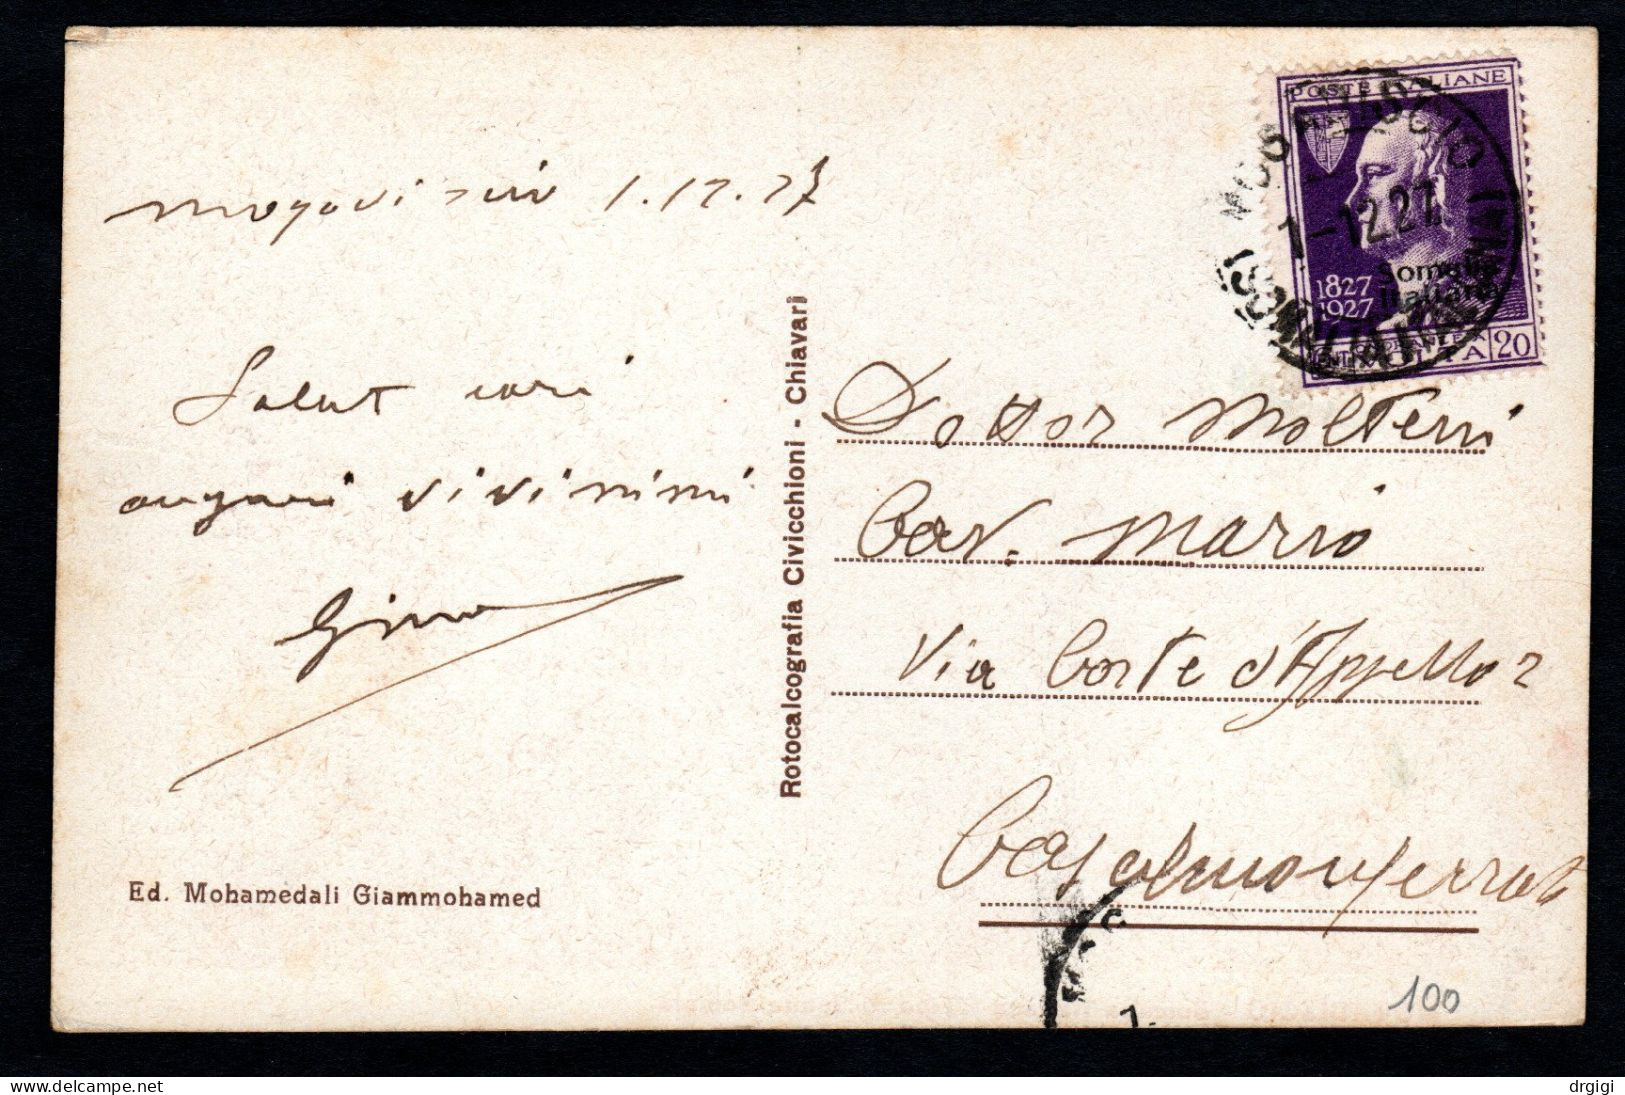 Mogadiscio 1.12.27
Saluti cari
auguri vivissimi
Gino
Ed. Mohamedali Giammohamed
Rotocalcografia Civicchioni - Chiavari
POSTE ITALIANE
MOGADISCIO
1-12.27
1827
1927
Somalia
Italiana
VOLTA 20
Dottor Molteni
Cav. Mario
Via Corte d'Appello 2
Casalmonferrato
100
drgigi